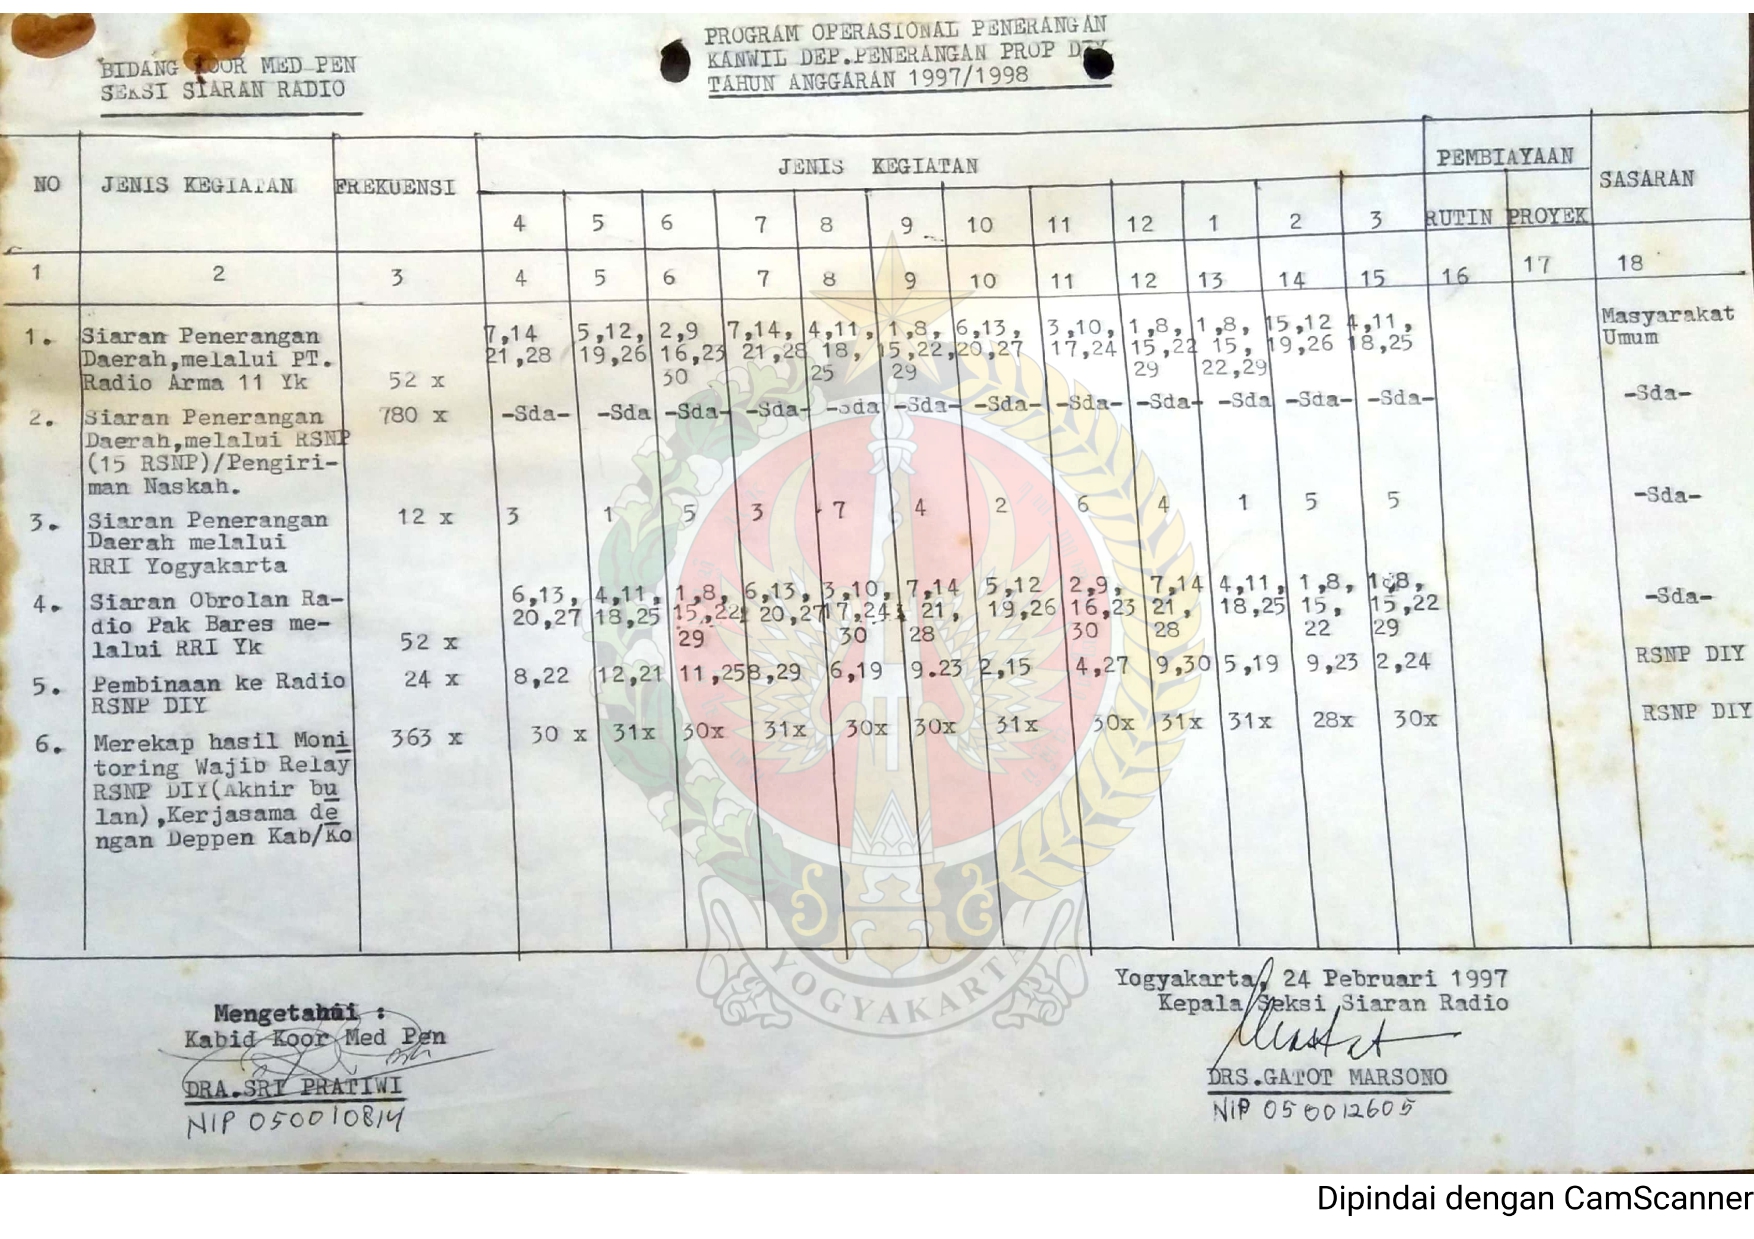 BIDANG KOOR MED PEN
SEKSI SIARAN RADIO
PROGRAM OPERASIONAL PENERANGAN
KANWIL DEP.PENERANGAN PROP DIY
TAHUN ANGGARAN 1997/1998
NO JENIS KEGIATAN FREKUENSI JENIS KEGIATAN PEMBIAYAAN SASARAN
4 5 6 7 8 9 10 11 12 1 2 3 RUTIN PROYEK
1 2 3 4 5 6 7 8 9 10 11 12 13 14 15 16 17 18
1. Siaran Penerangan 7,14 5,12, 2,9 7,14, 4,11, 1,8, 6,13, 3,10, 1,8, 1,8, 15,12 4,11, Masyarakat
Daerah,melalui PT. 21,28 19,26 16,23 21,28 18, 15,22, 20,27 17,24 15,22 15, 19,26 18,25 Umum
Radio Arma 11 Yk 52 x 30 25 29 29 22,29
2. Siaran Penerangan 780 x -Sda- -Sda -Sda- -Sda- -Sda -Sda- -Sda- -Sda- -Sda- -Sda -Sda- -Sda- -Sda-
Daerah,melalui RSNP
(15 RSNP)/Pengiri-
man Naskah.
3. Siaran Penerangan 12 x 3 1 5 3 7 4 2 6 4 1 5 5 -Sda-
Daerah melalui
RRI Yogyakarta
4. Siaran Obrolan Ra- 6,13, 4,11, 1,8, 6,13, 3,10, 7,14 5,12 2,9, 7,14 4,11, 1,8, 1,8, -Sda-
dio Pak Bares me- 20,27 18,25 15,22 20,27 17,24 21, 19,26 16,23 21, 18,25 15, 15,22
lalui RRI Yk 52 x 29 30 28 30 28 22 29
5. Pembinaan ke Radio 24 x 8,22 12,21 11,25 8,29 6,19 9.23 2,15 4,27 9,30 5,19 9,23 2,24 RSNP DIY
RSNP DIY
6. Merekap hasil Moni 363 x 30 x 31x 30x 31x 30x 30x 31x 30x 31x 31x 28x 30x RSNP DIY
toring Wajib Relay
RSNP DIY(Akhir bu
lan),Kerjasama de
ngan Deppen Kab/Ko
YOGYAKARTA
Yogyakarta, 24 Pebruari 1997
Kepala Seksi Siaran Radio
DRS.GATOT MARSONO
NIP 050012605
Mengetahui :
Kabid Koor Med Pen
DRA.SRI PRATIWI
NIP 050010814
Dipindai dengan CamScanner